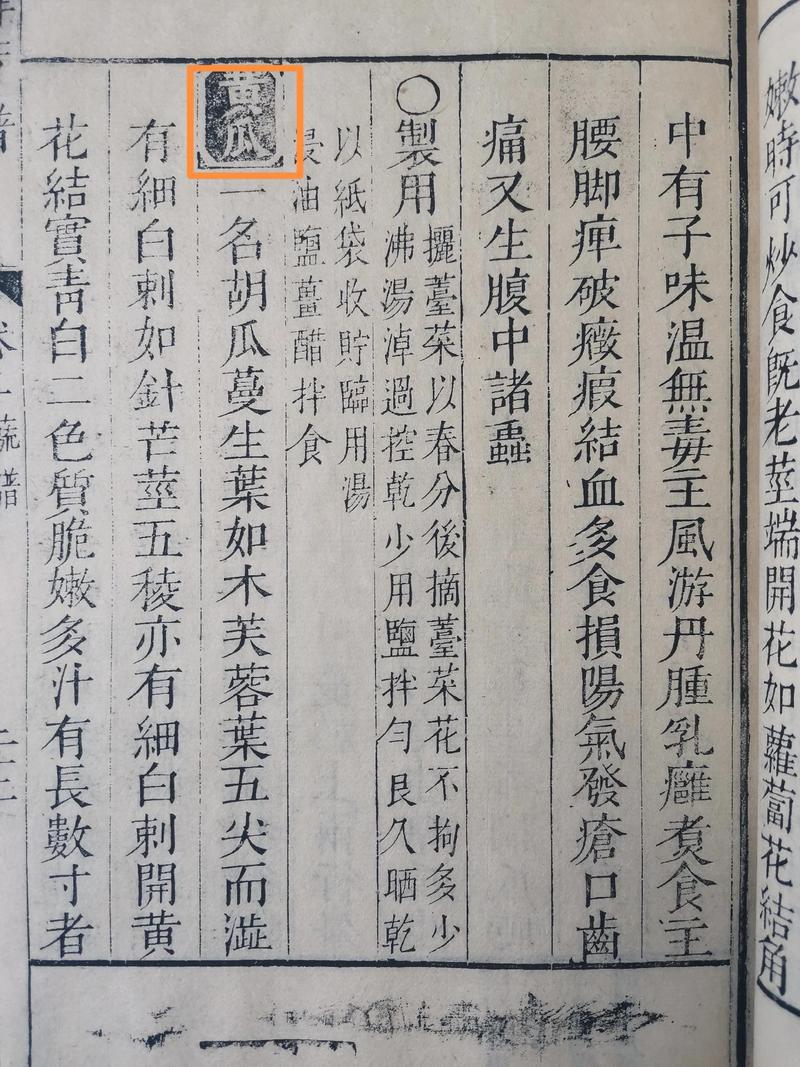 嫩時可炒食既老莖端開花如蘿蔔花結角
中有子味温無毒主風游丹腫乳癰煮食主
腰脚痺破癥瘕結血多食損陽氣發瘡口齒
痛又生腹中諸蟲
○製用
擺薹菜以春分後摘薹菜花不拘多少
沸湯淖過控乾少用鹽拌勻良久晒乾
以紙袋收貯臨用湯
浸油鹽薑醋拌食
黄瓜一名胡瓜蔓生葉如木芙蓉葉五尖而澁
有細白刺如針芒莖五稜亦有細白刺開黄
花結實青白二色質脆嫩多汁有長數寸者
蔬譜